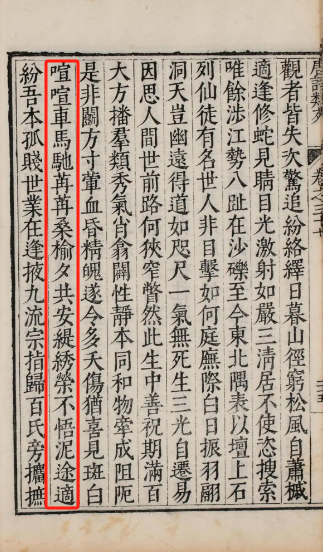 觀者皆失次驚追紛絡繹日暮山徑窮松風自蕭槭
適逢修蛇見睛目光激射如嚴三清居不使恣搜索
唯餘渉江勢八趾在沙礫至今東北隅表以壇上石
列仙徒有名世人非目擊如何庭廡際白日振羽翮
洞天豈幽遠得道如咫尺一氣無死生三光自遷易
因思人間世前路何狹窄瞥然此生中善祝期滿百
大方播羣類秀氣肖翕闢性靜本同和物牽成阻阨
是非鬬方寸葷血昏精魄遂令多夭傷猶喜見斑白
喧喧車馬馳苒苒桑榆夕共安緹綉榮不悟泥途適
紛吾本孤賤世業在逢掖九流宗指歸百氏旁攟摭